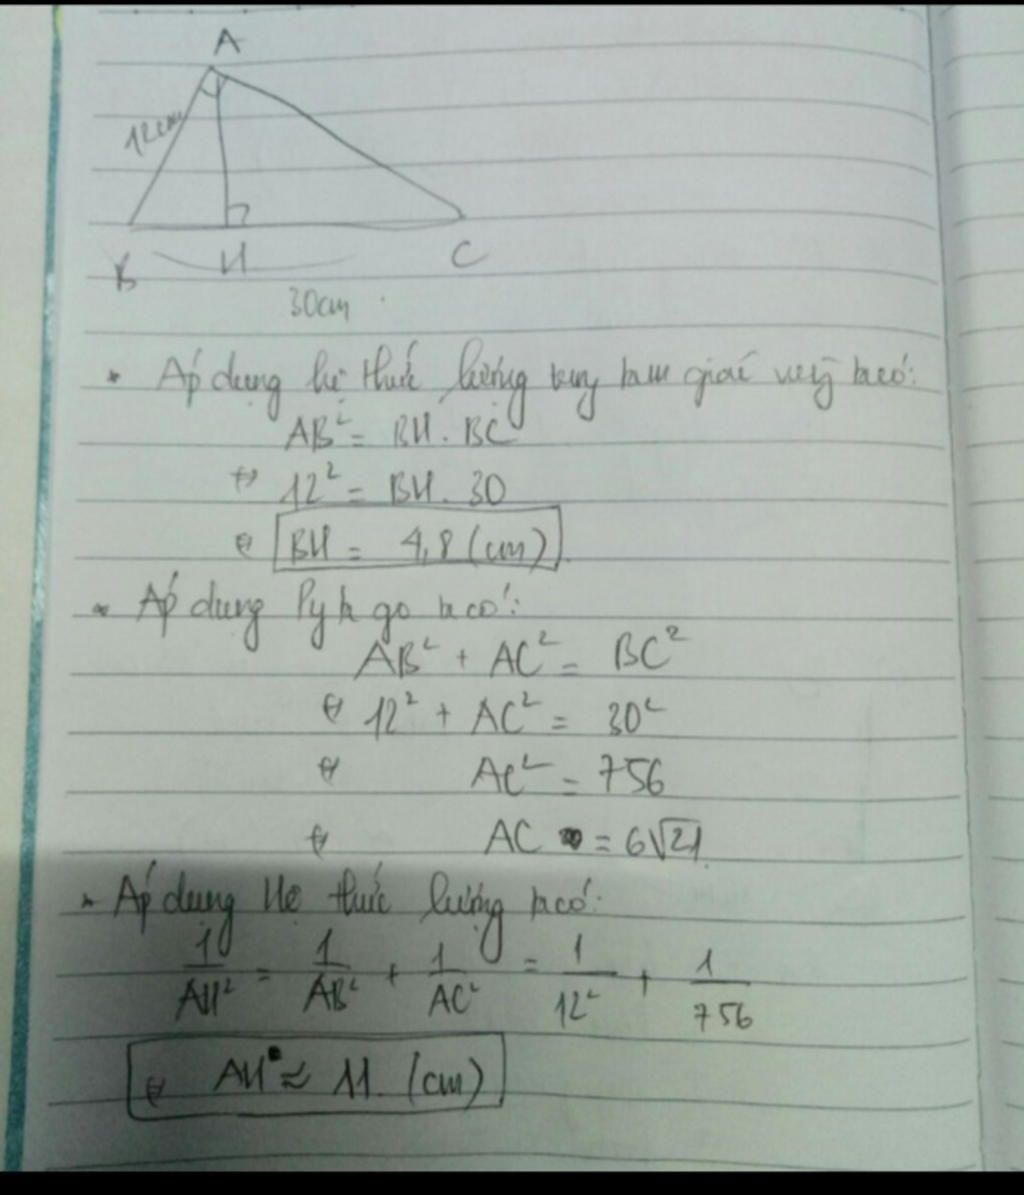 A
12cm
B H C
30cm
* Áp dụng hệ thức lượng trong tam giác vuông ta có:
AB² = BH . BC
⇔ 12² = BH . 30
⇔ BH = 4,8 (cm)
* Áp dụng Pytago ta có:
AB² + AC² = BC²
⇔ 12² + AC² = 30²
⇔ AC² = 756
⇔ AC = 6√21
* Áp dụng Hệ thức lượng ta có:
1/AH² = 1/AB² + 1/AC² = 1/12² + 1/756
⇔ AH ≈ 11 (cm)